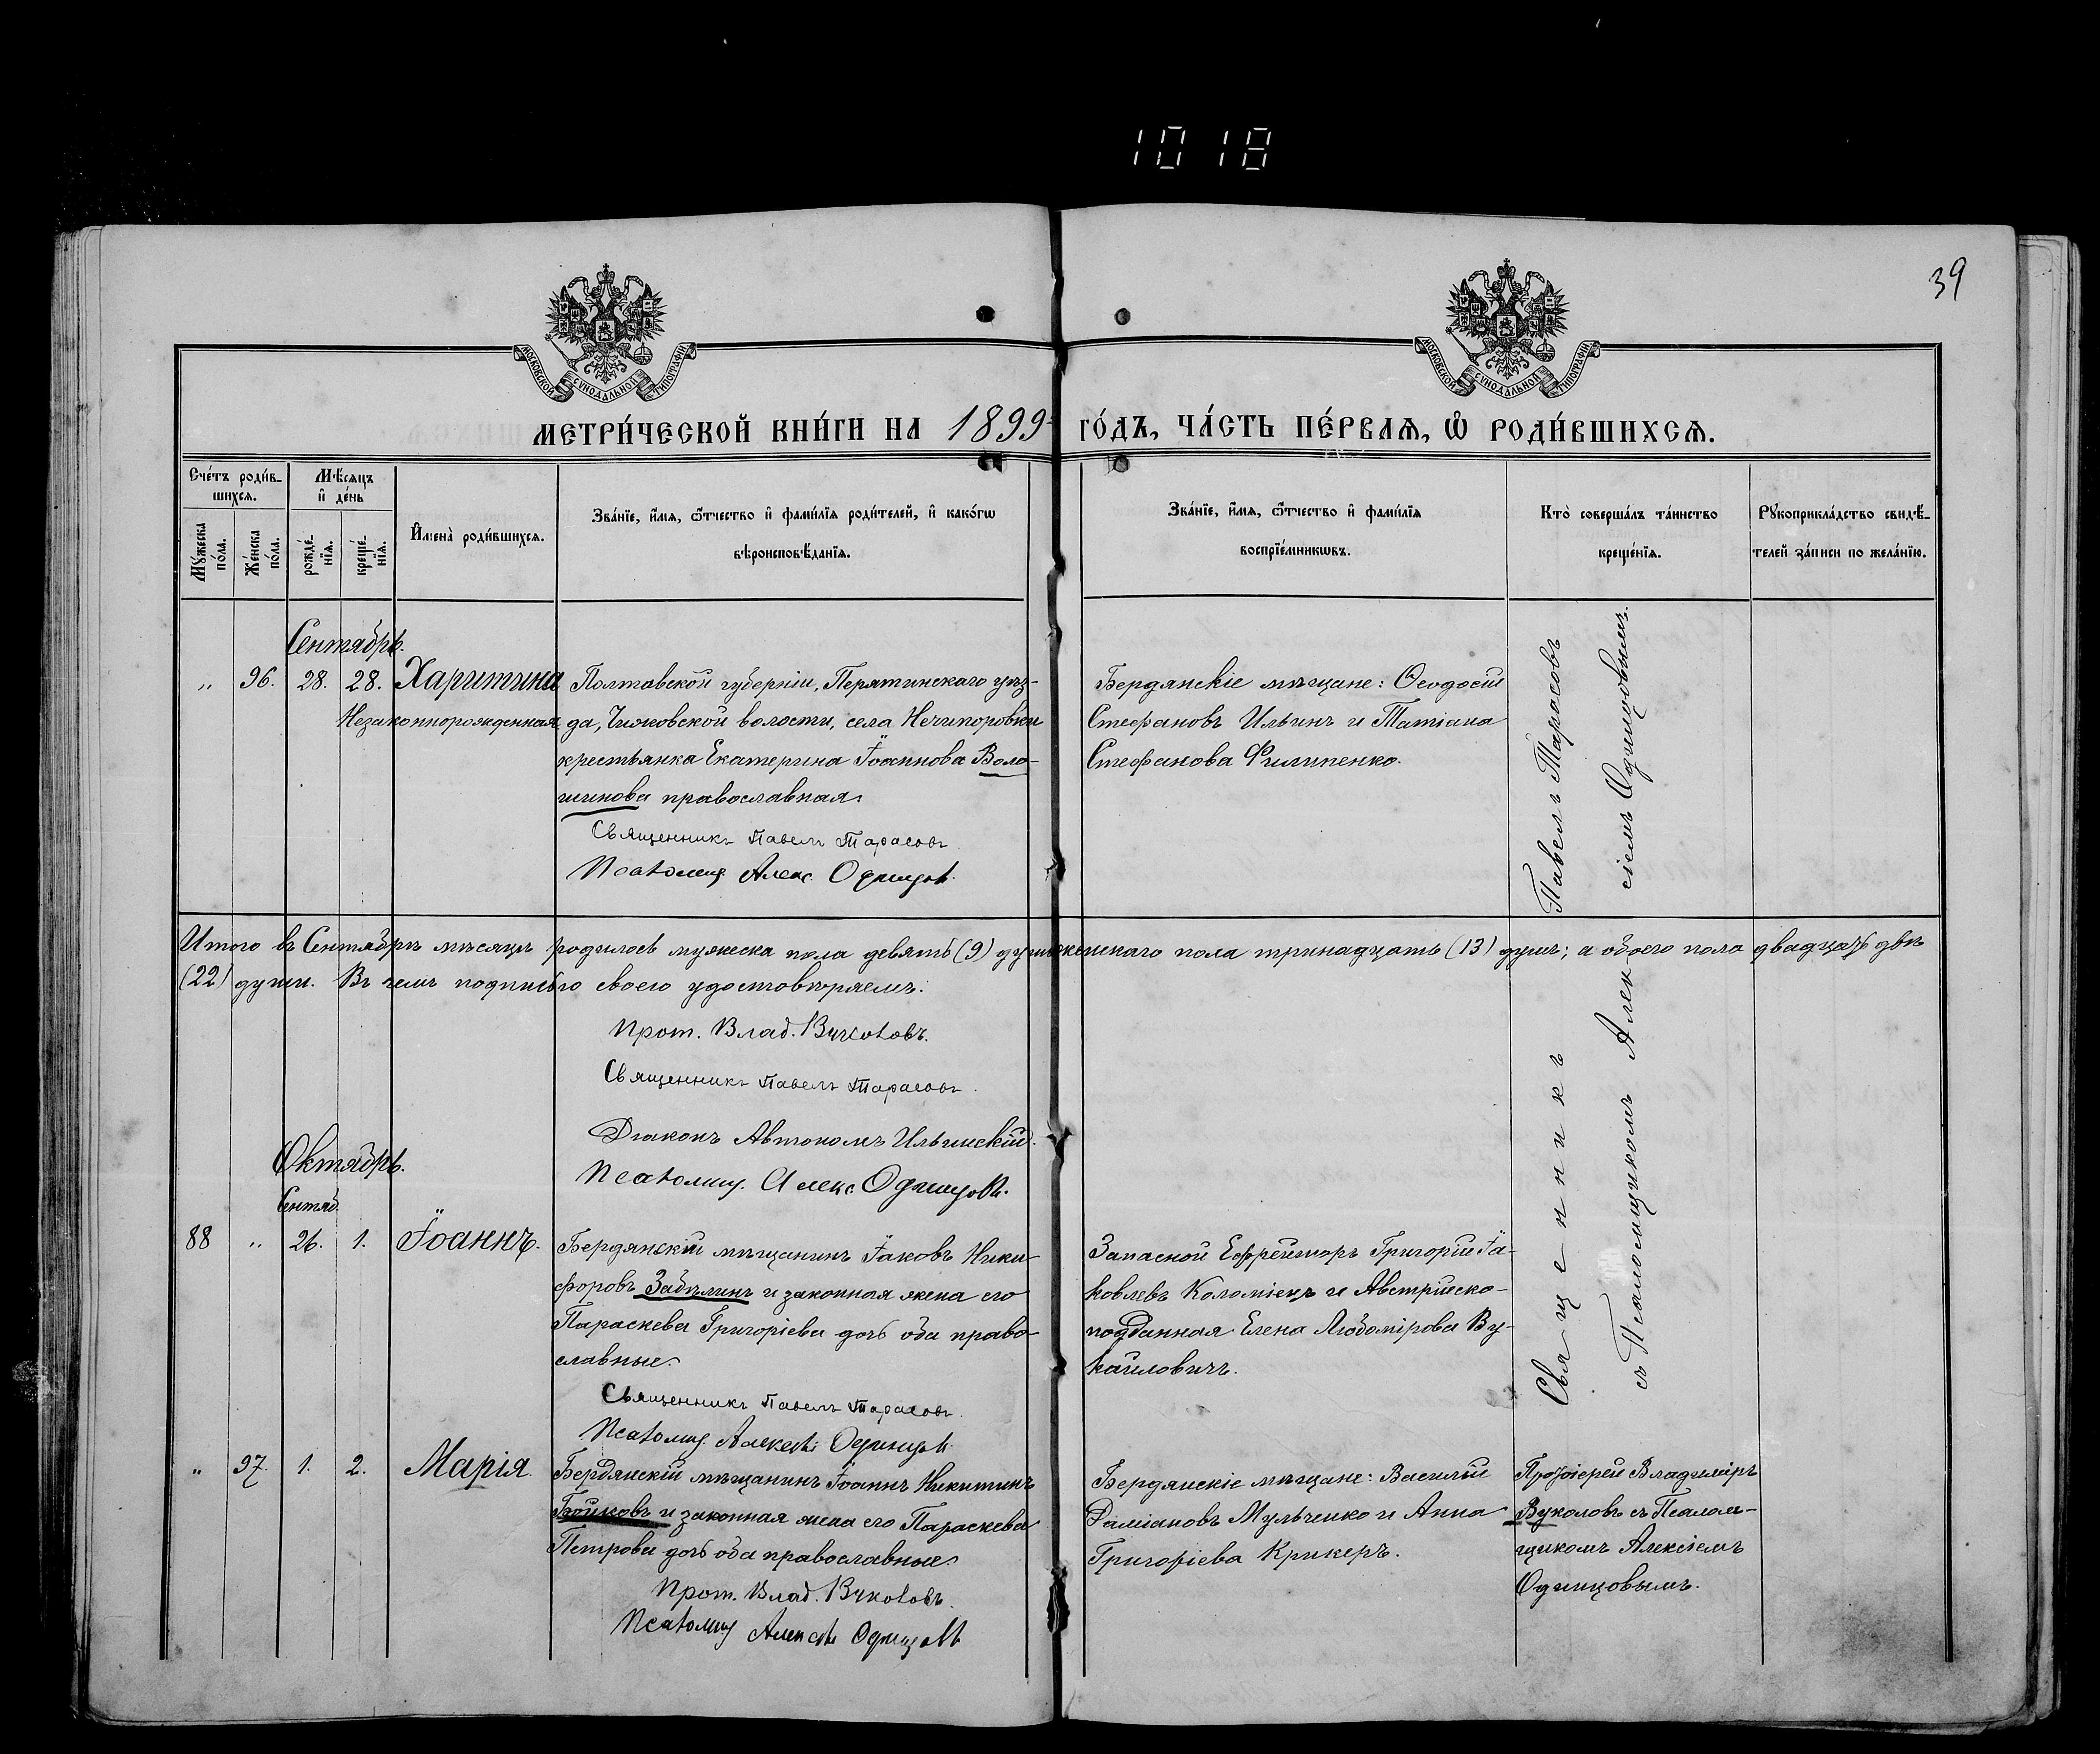 1018
39
МОСКОВСКОЙ СУНОДАЛЬНОЙ ТИПОГРАФІИ
МОСКОВСКОЙ СУНОДАЛЬНОЙ ТИПОГРАФІИ
МЕТРИ́ЧЕСКОЙ КНИ́ГИ НА 1899 ГО́ДЪ, ЧА́СТЬ ПЕ́РВАѦ, Ѡ҆ РОДИ́ВШИХСѦ.
Сче́тъ роди́в-
шихсѧ.
Мѣ́сѧцъ
и҆ де́нь
Мꙋ́жеска
по́ла.
Же́нска
по́ла.
рожде́-
нїѧ.
креще́-
нїѧ.
И҆мена̀ роди́вшихсѧ.
Зва́нїе, и҆́мѧ, ѻ҆́тчество и҆ фами́лїѧ роди́телей, и҆ како́гѡ
вѣроисповѣ́данїѧ.
Зва́нїе, и҆́мѧ, ѻ҆́тчество и҆ фами́лїѧ
воспрїе́мникѡвъ.
Кто̀ соверша́лъ та́инство
креще́нїѧ.
Рꙋкоприкла́дство свидѣ́-
телей за́писи по жела́нїю.
Сентябрь.
„ 96. 28. 28. Харитина
Незаконнорожденная
Полтавской губерніи, Перятинскаго уѣз-
да, Чижовской волости, села Нечипоровки
крестьянка Екатерина Іоаннова Воло-
шинова православная.
Священникъ Павелъ Тарасовъ
Псаломщ. Алекс. Одинцовъ.
Бердянскіе мѣщане: Ѳеодосій
Стефановъ Ильинъ и Татіана
Стефанова Филипенко.
Священникъ Павелъ Тарасовъ
съ Псаломщикомъ Алексіемъ Одинцовымъ.
Итого въ Сентябрѣ мѣсяцѣ родилось мужеска пола девять (9) душъ женскаго пола тринадцать (13) душъ; а обоего пола двадцать двѣ
(22) души. Въ чемъ подписью своею удостовѣряемъ:
Прот. Влад. Вуколовъ.
Священникъ Павелъ Тарасовъ.
Діаконъ Автономъ Ильинскій.
Псаломщ. Алекс Одинцовъ.
Октябрь.
Сентяб.
88 „ 26. 1. Іоаннъ.
Бердянскій мѣщанинъ Іаковъ Ники-
форовъ Забѣлинъ и законная жена его
Параскева Григоріева дочь оба право-
славные.
Священникъ Павелъ Тарасовъ.
Псаломщ. Алексѣй Одинцовъ
Запасной Ефрейторъ Григорій Іа-
ковлевъ Коломіецъ и Австрійско-
подданная Елена Любомірова Ву-
каиловичъ.
„ 97. 1. 2. Марія.
Бердянскій мѣщанинъ Іоаннъ Никитинъ
Бойковъ и законная жена его Параскева
Петрова дочь оба православные.
Прот. Влад. Вуколовъ.
Псаломщ Алексѣй Одинцовъ
Бердянскіе мѣщане: Василій
Даміановъ Мульченко и Анна
Григоріева Крикеръ.
Протоіерей Владиміръ
Вуколовъ съ Псалом-
щикомъ Алексіемъ
Одинцовымъ.